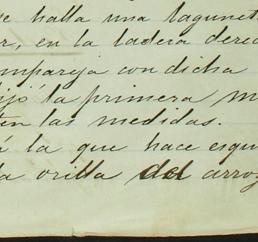 se halla una lagunet
r, en la ladera derec
mpareja con dicha
ijó la primera m
ten las medidas.
la que hace esqui
la orilla del arroy